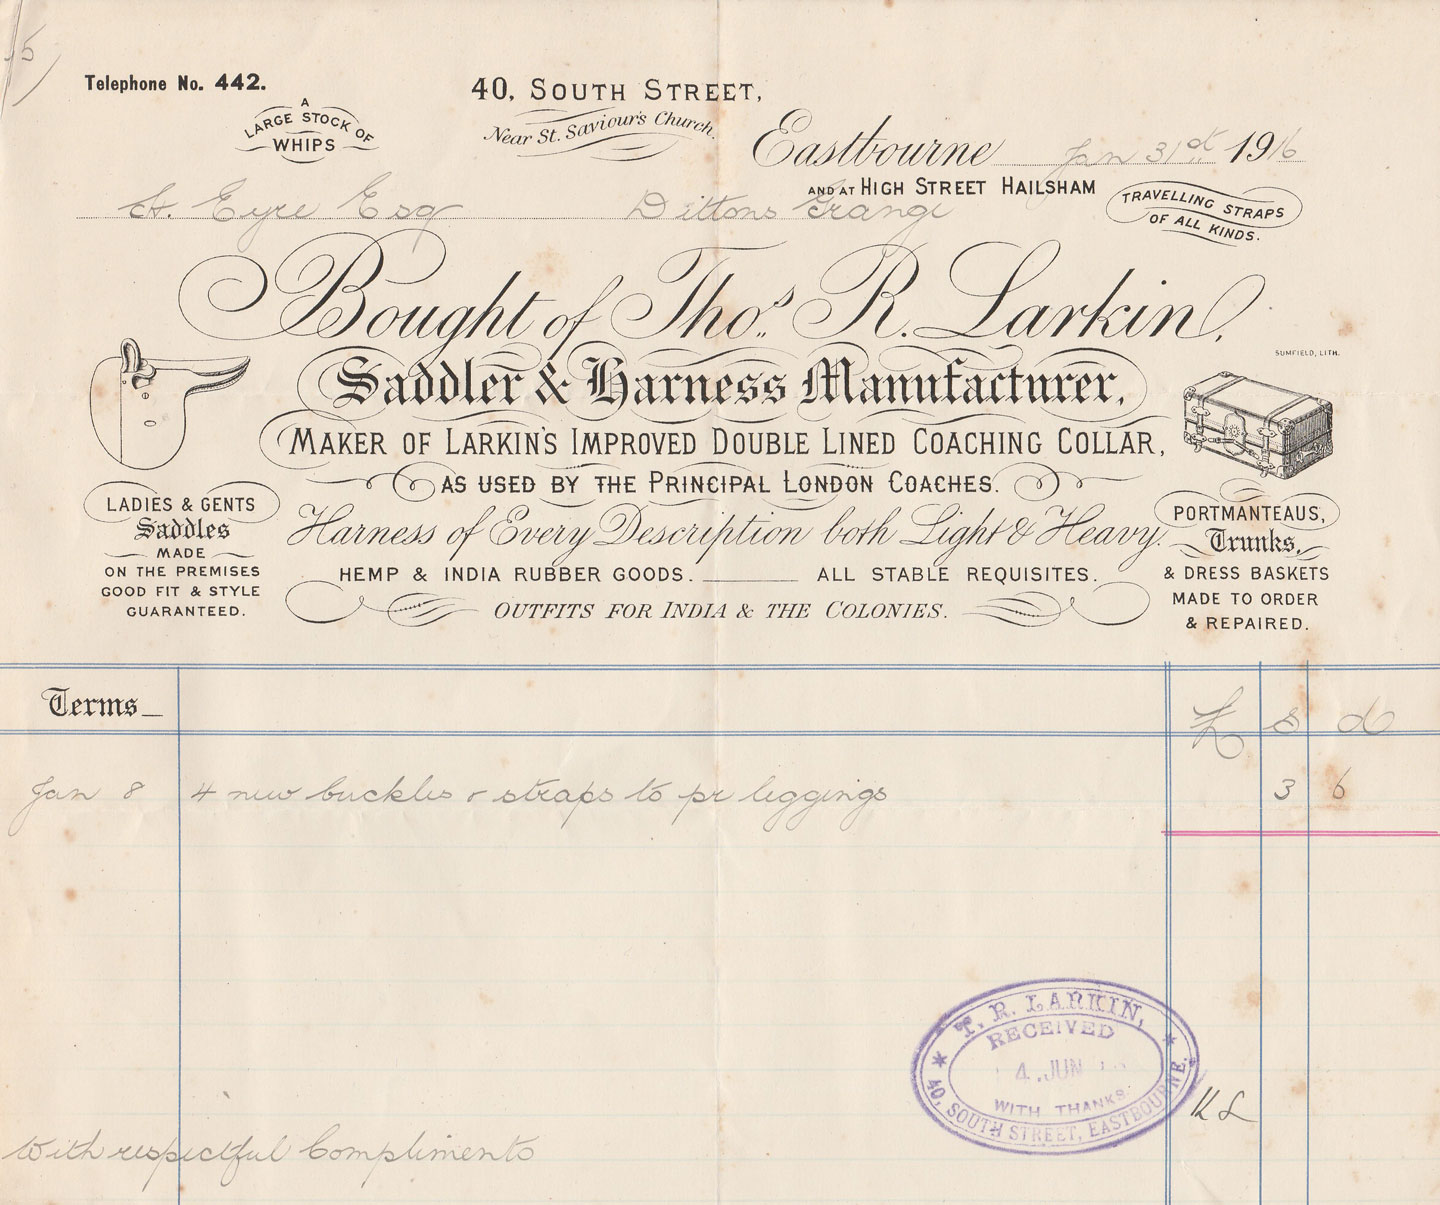 Telephone No. 442.
A
LARGE STOCK OF
WHIPS
40, SOUTH STREET,
Near St. Saviour's Church.
Eastbourne Jan 31st 1916
AND AT HIGH STREET HAILSHAM
TRAVELLING STRAPS
OF ALL KINDS.
Eyre Esq Dittons Grange
Bought of Thos. R. Larkin,
SUMFIELD, LITH.
Saddler & Harness Manufacturer,
MAKER OF LARKIN'S IMPROVED DOUBLE LINED COACHING COLLAR,
AS USED BY THE PRINCIPAL LONDON COACHES.
Harness of Every Description both Light & Heavy.
HEMP & INDIA RUBBER GOODS. ALL STABLE REQUISITES.
OUTFITS FOR INDIA & THE COLONIES.
LADIES & GENTS
Saddles
MADE
ON THE PREMISES
GOOD FIT & STYLE
GUARANTEED.
PORTMANTEAUS,
Trunks,
& DRESS BASKETS
MADE TO ORDER
& REPAIRED.
Terms
£ s d
Jan 8 4 new buckles & straps to pr leggings 3 6
T. R. LARKIN,
RECEIVED
4 . JUN
WITH THANKS.
40, SOUTH STREET, EASTBOURNE.
With respectful Compliments